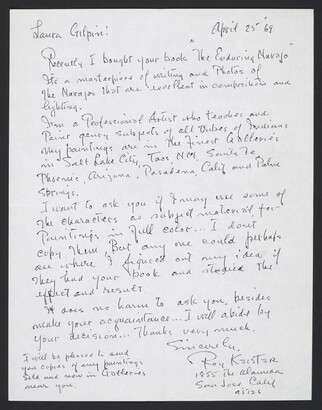 Laura Gilpin: April 25" '69
Recently I bought your book "The Enduring Navajo"
Its a masterpiece of writing and Photos of
the Navajos that are excellent in compositions and
lighting.
I'm a Professional Artist who teaches and
Paint genry subjects of all tribes of Indians
my paintings are in the Finest Galleries
in Salt Lake City, Taos, N.M. Santa Fe
Phoenix, Arizona, Pasadena, Calif and Palm
Springs.
I want to ask you if I may use some of
the characters as subject material for
Paintings in full color... I don't
copy them But any one could perhaps
see where I figured out my idea if
they had your book and studied the
effect and result
It does no harm to ask you, besides
make your acquaintance... I will abide by
your decision... Thanks very much.
Sincerely,
Roy Keister
1855 The Alameda
San Jose Calif
95126
I will be pleased to send
you copies of any paintings
sold and now in Galleries
near you.